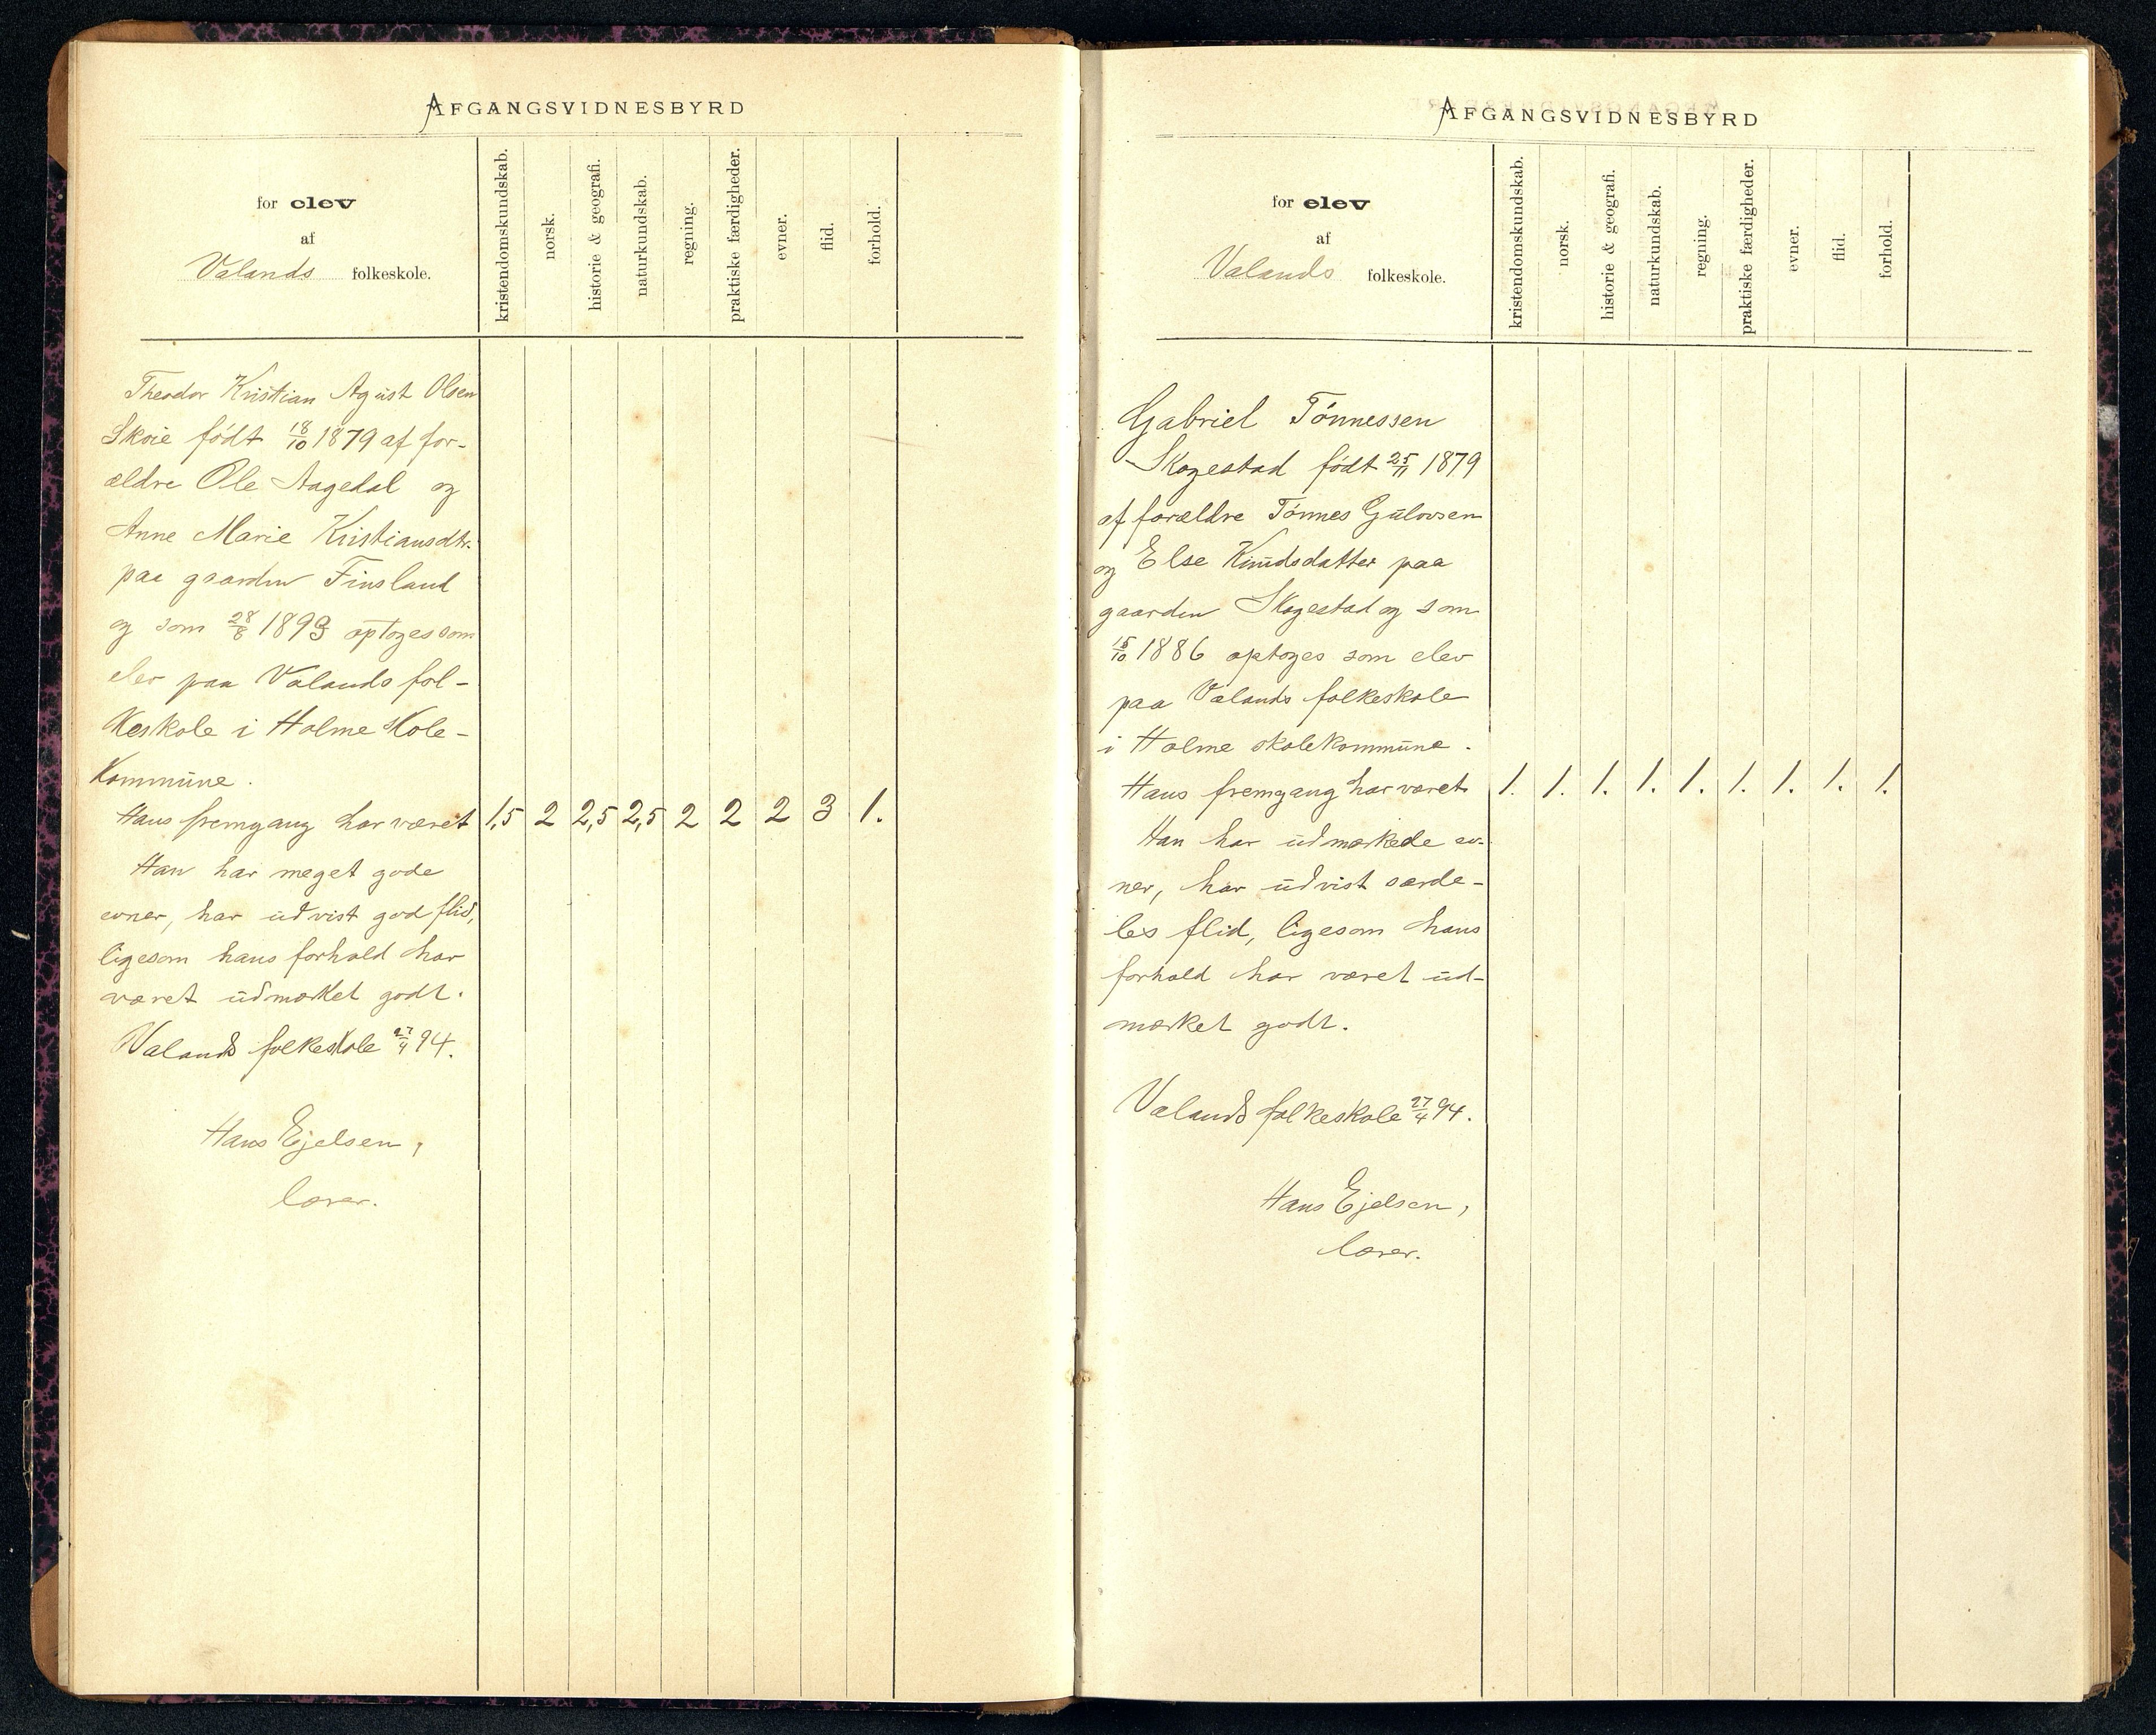 AFGANGSVIDNESBYRD
for elev
af
Valands folkeskole.
kristendomskundskab.
norsk.
historie & geografi.
naturkundskab.
regning.
praktiske færdigheder.
evner.
flid.
forhold.
Theodor Kristian Agust Olsen
Skoie født 18/10 1879 af for-
ældre Ole Aagedal og
Anne Marie Kristiansdtr.
paa gaarden Finsland
og som 28/8 1893 optoges som
elev paa Valands fol-
keskole i Holme skole-
kommune.
Hans fremgang har været 1,5 2 2,5 2,5 2 2 2 3 1.
Han har meget gode
evner, har udvist god flid,
ligesom hans forhold har
været udmærket godt.
Valands folkeskole 27/4 94.
Hans Ejelsen,
lærer.
AFGANGSVIDNESBYRD
for elev
af
Valands folkeskole.
kristendomskundskab.
norsk.
historie & geografi.
naturkundskab.
regning.
praktiske færdigheder.
evner.
flid.
forhold.
Gabriel Tönnessen
Skogestad født 25/11 1879
af forældre Tönnes Gulovsen
og Else Knudsdatter paa
gaarden Skogestad og som
15/10 1886 optoges som elev
paa Valands folkeskole
i Holme skolekommune.
Hans fremgang har været 1. 1. 1. 1. 1. 1. 1. 1. 1.
Han har udmærkede ev-
ner, har udvist særde-
les flid, ligesom hans
forhold har været ud-
mærket godt.
Valands folkeskole 27/4 94.
Hans Ejelsen,
lærer.